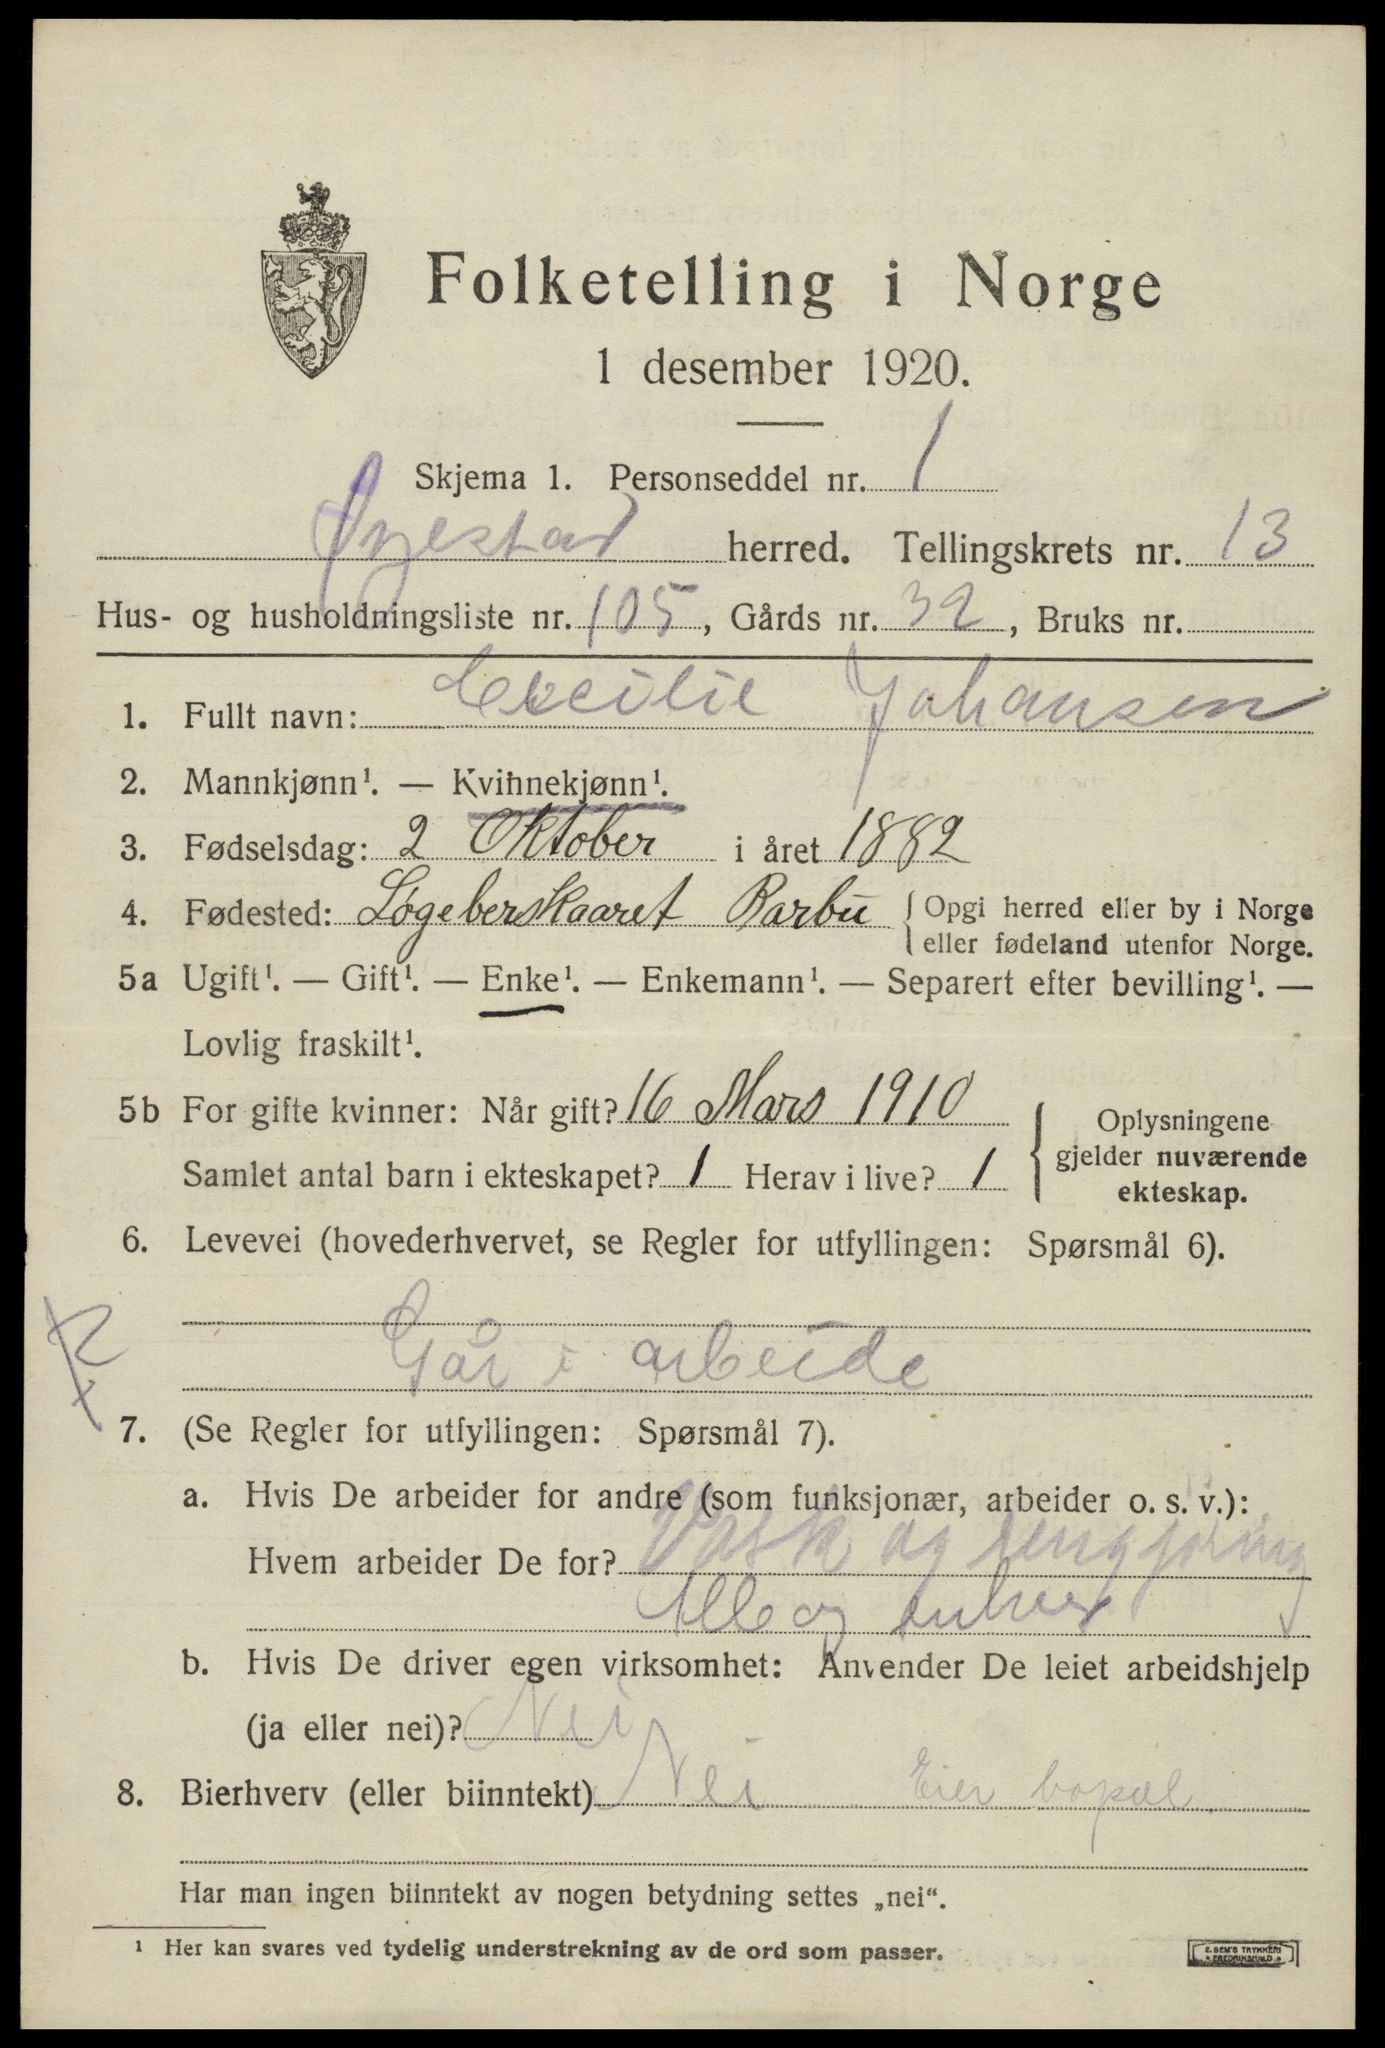 Folketelling i Norge
1 desember 1920.
Skjema 1. Personseddel nr. 1
Øyestad herred. Tellingskrets nr. 13
Hus- og husholdningsliste nr. 105, Gårds nr. 32, Bruks nr.
1. Fullt navn: Cecilie Johansen
2. Mannkjønn¹. — Kvinnekjønn¹.
3. Fødselsdag: 2 Oktober i året 1882
4. Fødested: Løgeberskaaret Barbu { Opgi herred eller by i Norge
eller fødeland utenfor Norge.
5a Ugift¹. — Gift¹. — Enke¹. — Enkemann¹. — Separert efter bevilling¹. —
Lovlig fraskilt¹.
5b For gifte kvinner: Når gift? 16 Mars 1910
Samlet antal barn i ekteskapet? 1 Herav i live? 1
Oplysningene
gjelder nuværende
ekteskap.
6. Levevei (hovederhvervet, se Regler for utfyllingen: Spørsmål 6).
Går i arbeide
7. (Se Regler for utfyllingen: Spørsmål 7).
a. Hvis De arbeider for andre (som funksjonær, arbeider o. s. v.):
Hvem arbeider De for? Vask og rengjøring
Alle og enhver
b. Hvis De driver egen virksomhet: Anvender De leiet arbeidshjelp
(ja eller nei)? Nei
8. Bierhverv (eller biinntekt) Nei Eier bopæl
Har man ingen biinntekt av nogen betydning settes „nei“.
¹ Her kan svares ved tydelig understrekning av de ord som passer.
E. SEM'S TRYKKERI
FREDRIKSHALD